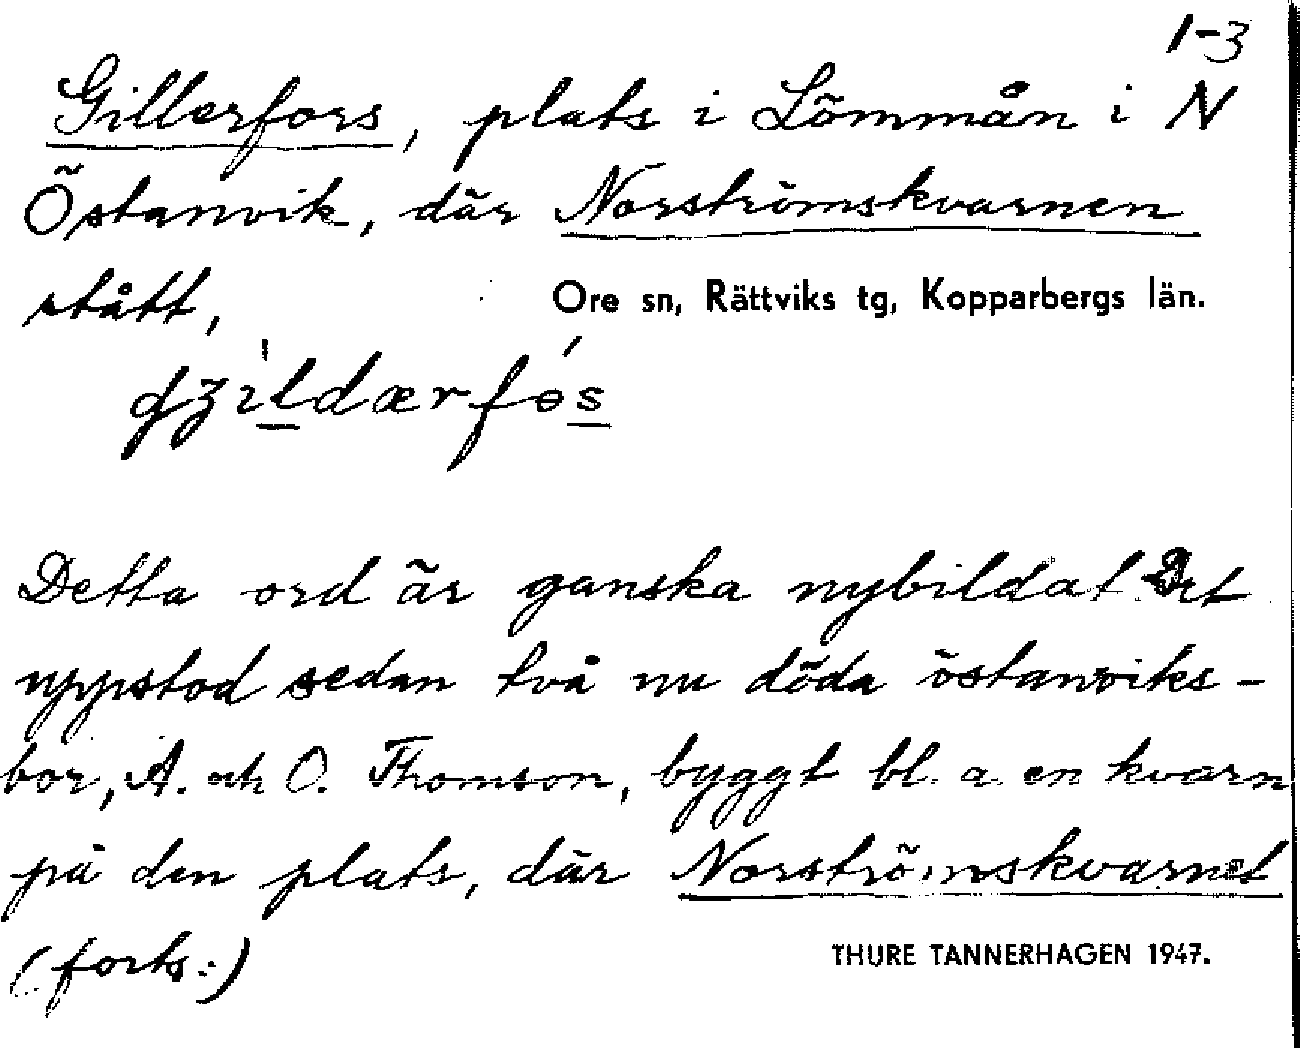 1-3
Gillerfors, plats i Lömmån i N
Östanvik, där Norströmskvarnen
stått,
Ore sn, Rättviks tg, Kopparbergs län.
Detta ord är ganska nybildat. Det
uppstod sedan två nu döda östanviks-
bor, A. och O. Thomson, byggt bl. a. en kvarn
på den plats, där Norströmskvarnet
(forts.:)
THURE TANNERHAGEN 1947.